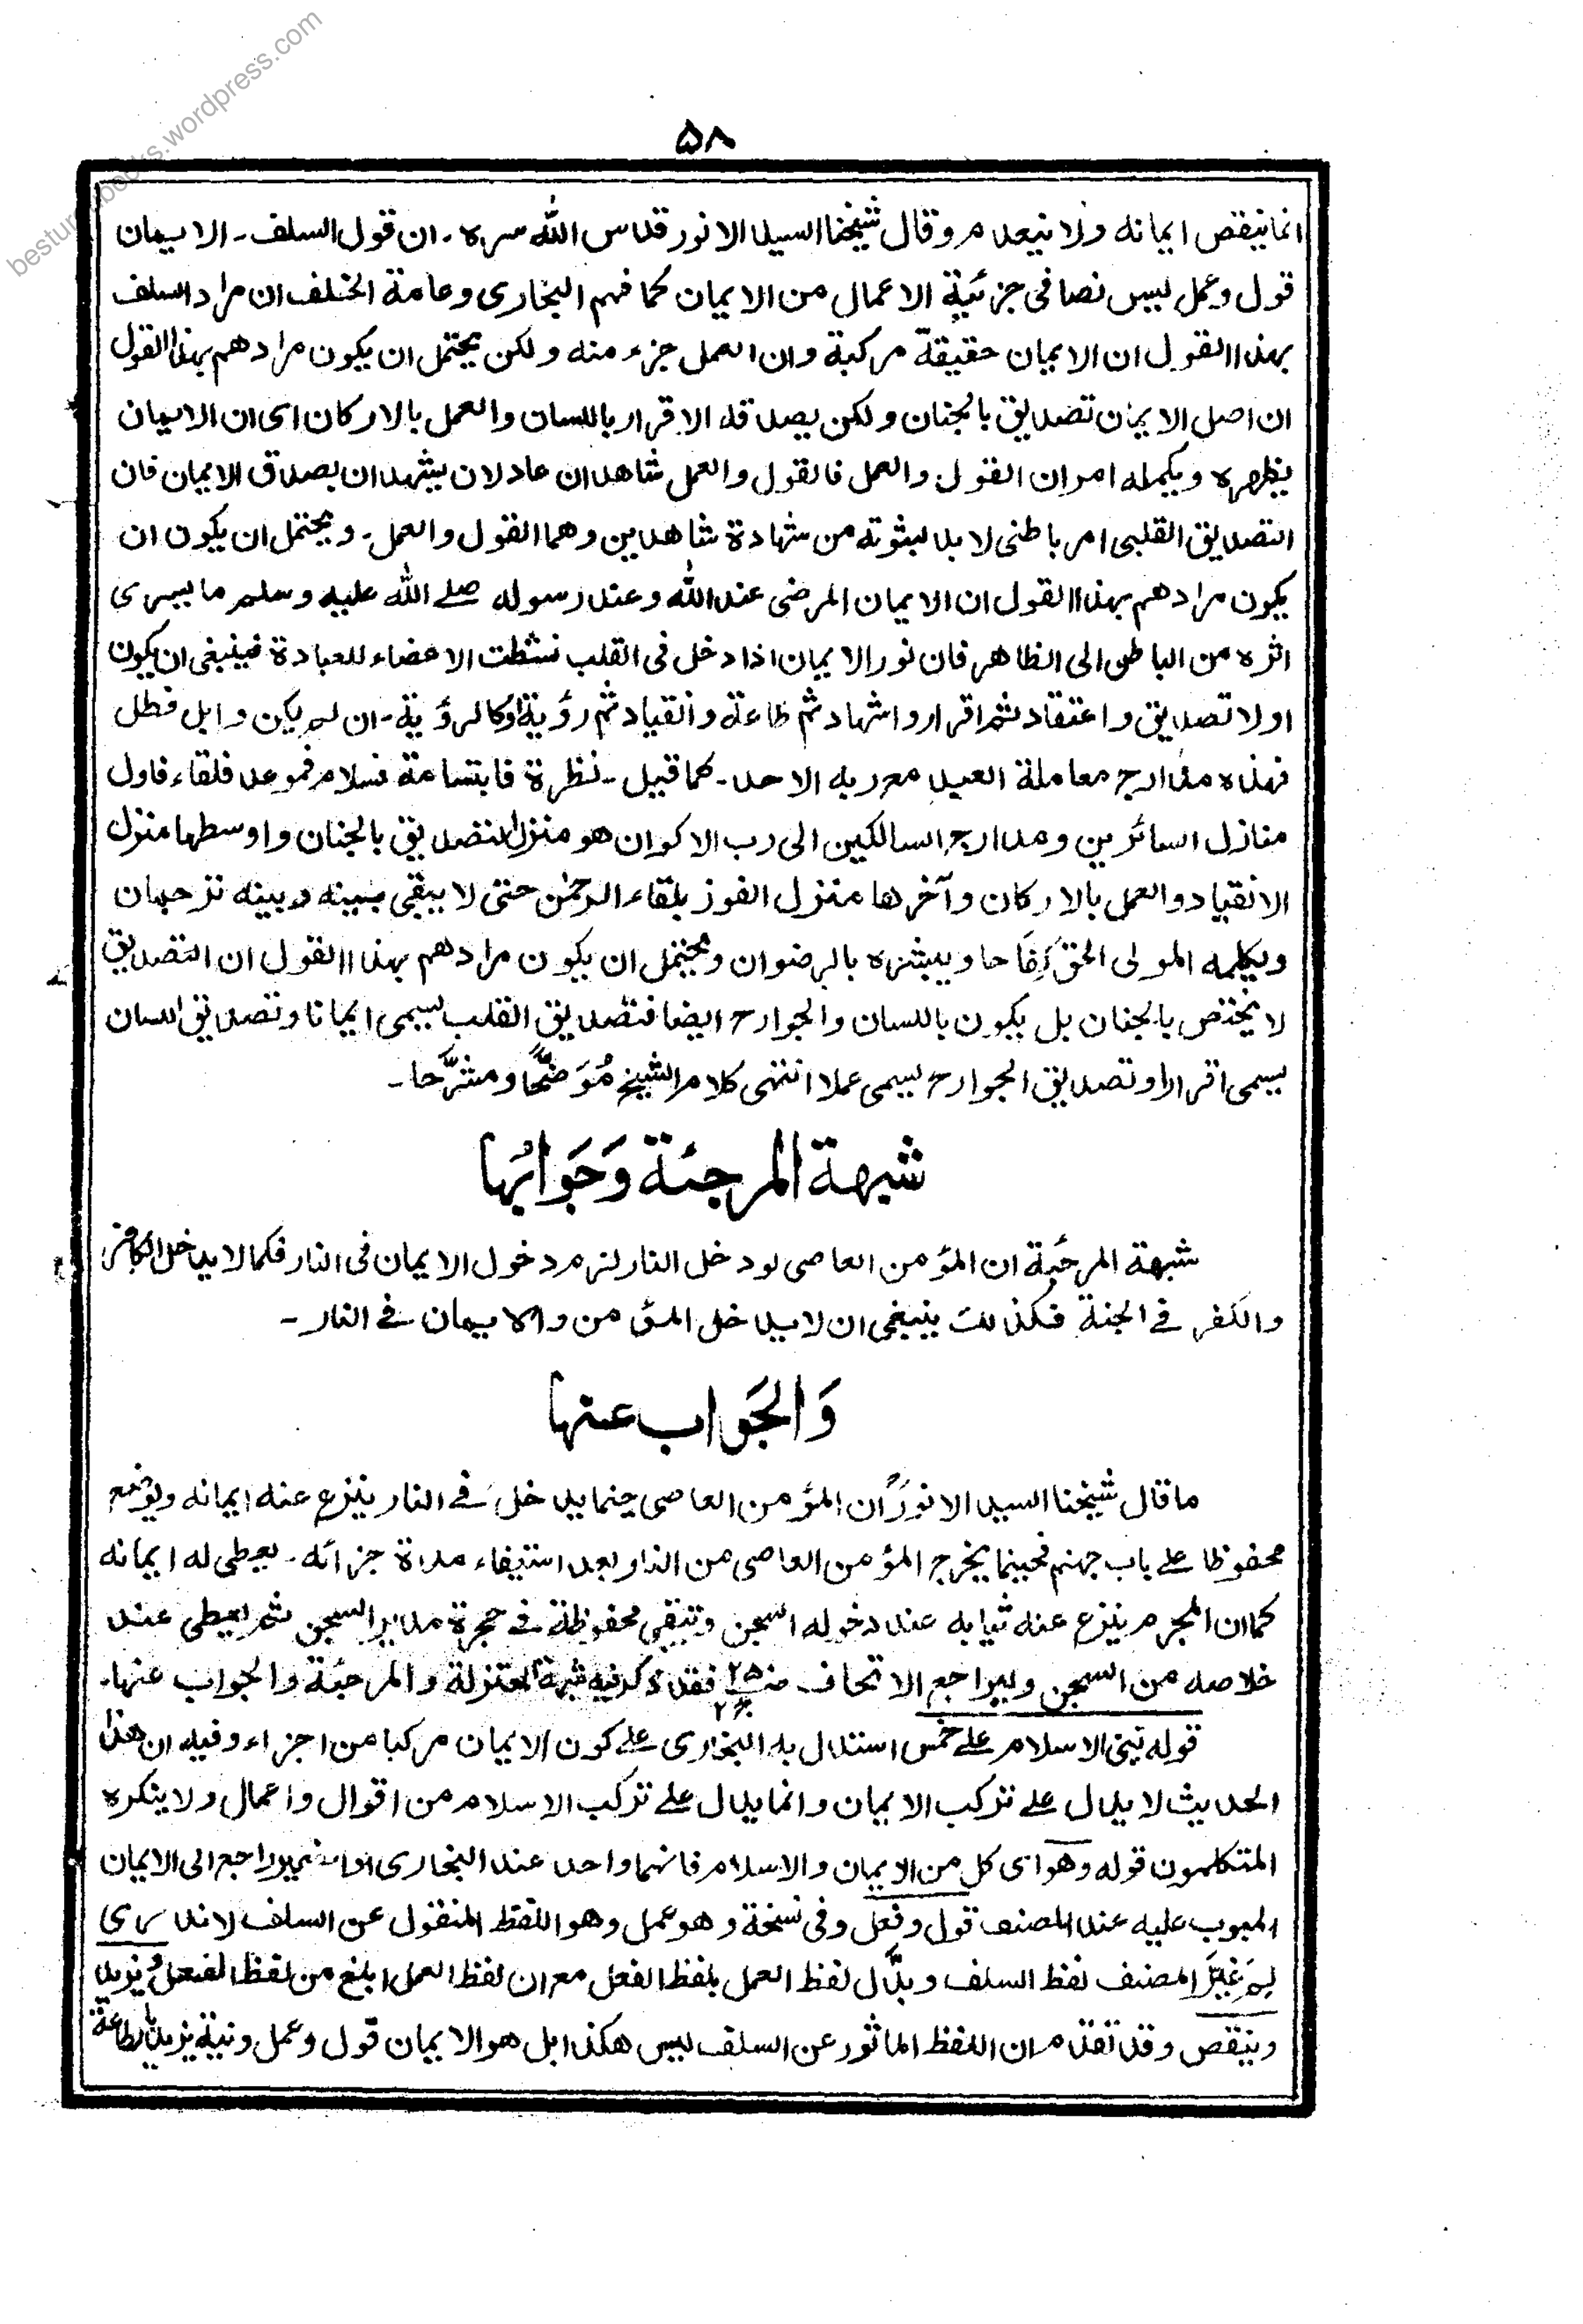 besturdubooks.wordpress.com
۵۸
انما ینقص ایمانه ولا ینعدم وقال شیخنا السید الانور قدس الله سره ـ ان قول السلف ـ الایمان
قول وعمل لیس نصا فی جزئیة الاعمال من الایمان کما فهم البخاری وعامة الخلف ان مراد السلف
بهذا القول ان الایمان حقیقة مرکبة وان العمل جزء منه ولکن یحتمل ان یکون مرادهم بهذا القول
ان اصل الایمان تصدیق بالجنان ولکن یصدقه الاقرار باللسان والعمل بالارکان ای ان الایمان
یظهره ویکمله امران القول والعمل فالقول والعمل شاهدان عادلان یشهدان بصدق الایمان فان
التصدیق القلبی امر باطنی لا بد لثبوته من شهادة شاهدین وهما القول والعمل ـ ویحتمل ان یکون ان
یکون مرادهم بهذا القول ان الایمان المرضی عند الله وعند رسوله صلے الله علیه وسلم ما یسری
اثره من الباطن الی الظاهر فان نور الایمان اذا دخل فی القلب نشطت الاعضاء للعبادة فینبغی ان یکون
اولا تصدیق واعتقاد ثم اقرار واشهاد ثم طاعة وانقیاد ثم رؤیة او کالرؤیة ـ ان لم یکن وابل فطل
فهذه مدارج معاملة العبد مع ربه الاحد ـ کما قیل ـ نظرة فابتسامة فسلام فموعد فلقاء فاول
منازل السائرین ومدارج السالکین الی رب الاکوان هو منزل التصدیق بالجنان واوسطها منزل
الانقیاد والعمل بالارکان وآخرها منزل الفوز بلقاء الرحمٰن حتی لا یبقی بینه وبینه ترجمان
ویکلمه المولی الحق کِفَاحا ویبشره بالرضوان ویحتمل ان یکون مرادهم بهذا القول ان التصدیق
لا یختص بالجنان بل یکون باللسان والجوارح ایضا فتصدیق القلب یسمی ایمانا وتصدیق اللسان
یسمی اقرارا وتصدیق الجوارح یسمی عملا انتهی کلام الشیخ مُوَضَّحًا ومشرَّحا ـ
شبهة المرجئة وَجَوابُها
شبهة المرجئة ان المؤمن العاصی لو دخل النار لزم دخول الایمان فی النار فکما لا یدخل الکافر
والکفر فے الجنة فکذلک ینبغی ان لا یدخل المؤمن والایمان فے النار ـ
وَالجَواب عنها
ما قال شیخنا السید الانورؒ ان المؤمن العاصی حینما یدخل فے النار ینزع عنه ایمانه ویوضع
محفوظا علے باب جهنم فحینما یخرج المؤمن العاصی من النار بعد استیفاء مدة جزائه ـ یعطی له ایمانه
کما ان المجرم ینزع عنه ثیابه عند دخوله السجن وتبقی محفوظة فے حجرة مدیر السجن ثم یعطی عند
خلاصه من السجن ولیراجع الاتحاف فقد ذکر فیه شبهة المعتزلة والمرجئة والجواب عنها ـ
قوله بنی الاسلام علے خمس استدل به البخاری علے کون الایمان مرکبا من اجزاء وفیه ان هذا
الحدیث لا یدل علے ترکب الایمان وانما یدل علے ترکب الاسلام من اقوال واعمال ولا ینکره
المتکلمون قوله وهو ای کل من الایمان والاسلام فانهما واحد عند البخاری او الضمیر راجع الی الایمان
المبوب علیه عند المصنف قول وفعل وفی نسخة وهو عمل وهو اللفظ المنقول عن السلف لا ندری
لِمَ غَیَّرَ المصنف لفظ السلف وبدَّل لفظ العمل بلفظ الفعل مع ان لفظ العمل ابلغ من لفظ الفعل ویزید
وینقص وقد تقدم ان اللفظ الماثور عن السلف لیس هکذا بل هو الایمان قول وعمل ونیة یزید بالطاعة